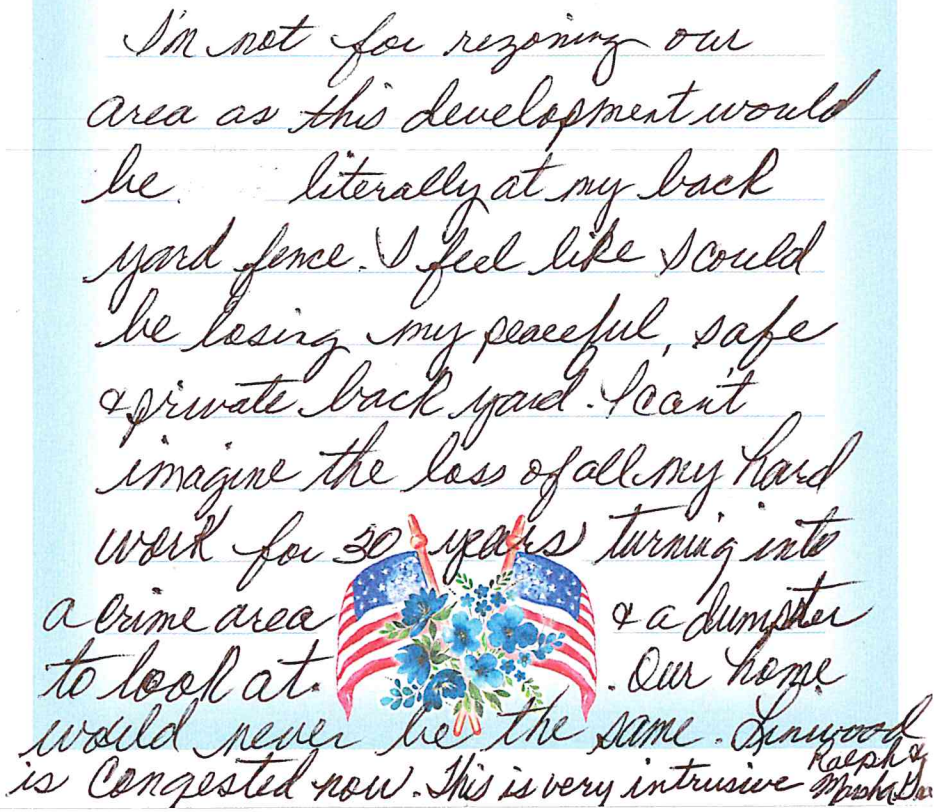 I'm not for rezoning our
area as this development would
be literally at my back
yard fence. I feel like I could
be losing my peaceful, safe
& private back yard. I can't
imagine the loss of all my hard
work for 30 years turning into
a crime area & a dumpster
to look at. . Our home
would never be the same. Linwood
is Congested now. This is very intrusive
Ralph &